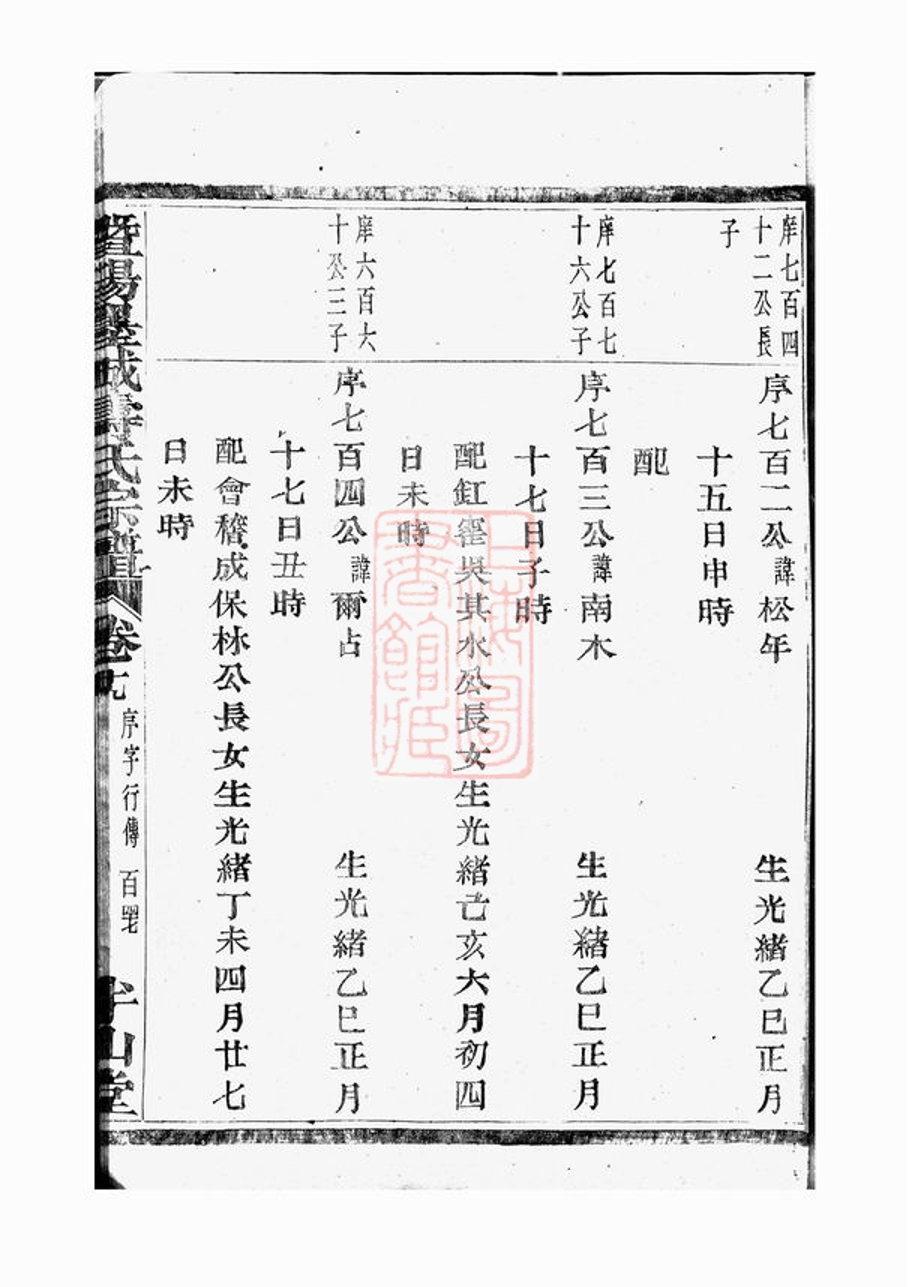 庠七百四
十二公長
子
序七百二公諱松年 生光緒乙巳正月
十五日申時
配
庠七百七
十六公子
序七百三公諱南木 生光緒乙巳正月
十七日子時
配釭窰吳其水公長女生光緒己亥六月初四
日未時
庠六百六
十公三子
序七百四公諱爾占 生光緒乙巳正月
十七日丑時
配會稽成保林公長女生光緒丁未四月廿七
日未時
暨陽墨城壽氏宗譜 卷十九 序字行傳
山堂
上海圖書館藏